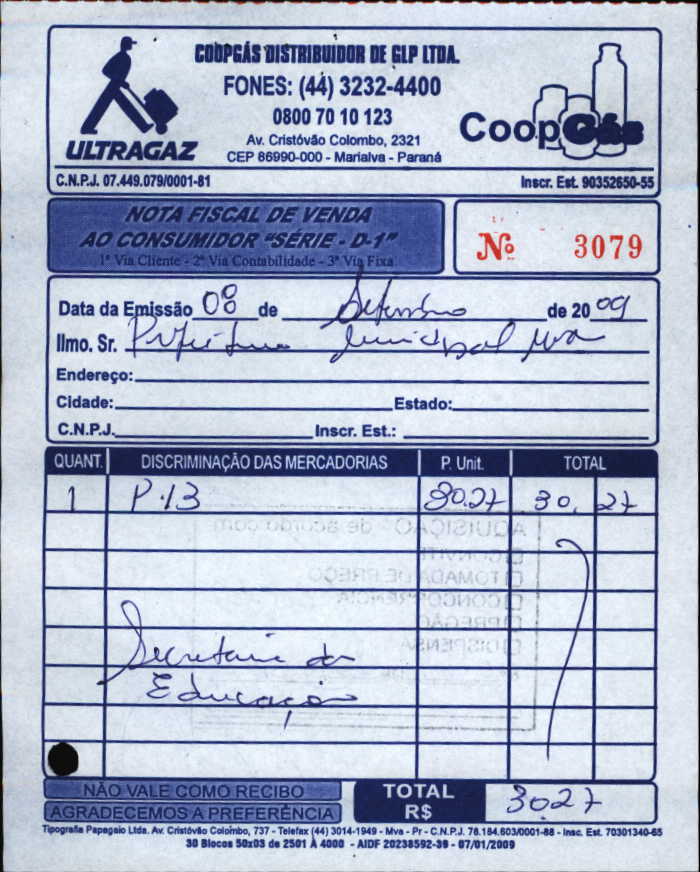 COOPGÁS DISTRIBUIDOR DE GLP LTDA.
FONES: (44) 3232-4400
0800 70 10 123
Av. Cristóvão Colombo, 2321
CEP 86990-000 - Marialva - Paraná
ULTRAGAZ
CoopGás
C.N.P.J. 07.449.079/0001-81 Inscr. Est. 90352650-55
NOTA FISCAL DE VENDA
AO CONSUMIDOR "SÉRIE - D-1"
1ª Via Cliente - 2ª Via Contabilidade - 3ª Via Fixa
Nº 3079
Data da Emissão 08 de Setembro de 2009
Ilmo. Sr. Prefeitura Municipal Mva
Endereço:
Cidade: Estado:
C.N.P.J. Inscr. Est.:
QUANT. DISCRIMINAÇÃO DAS MERCADORIAS P. Unit. TOTAL
1 P.13 30,27 30,27
AQUISIÇÃO de acordo com
CONVITE
TOMADA DE PREÇO
CONCORRÊNCIA
PREGÃO
DISPENSA
Secretaria da
Educação
NÃO VALE COMO RECIBO
AGRADECEMOS A PREFERÊNCIA
TOTAL
R$ 30,27
Tipografia Papagaio Ltda. Av. Cristóvão Colombo, 737 - Telefax (44) 3014-1949 - Mva - Pr - C.N.P.J. 78.184.603/0001-88 - Insc. Est. 70301340-65
30 Blocos 50x03 de 2501 À 4000 - AIDF 20238592-39 - 07/01/2009